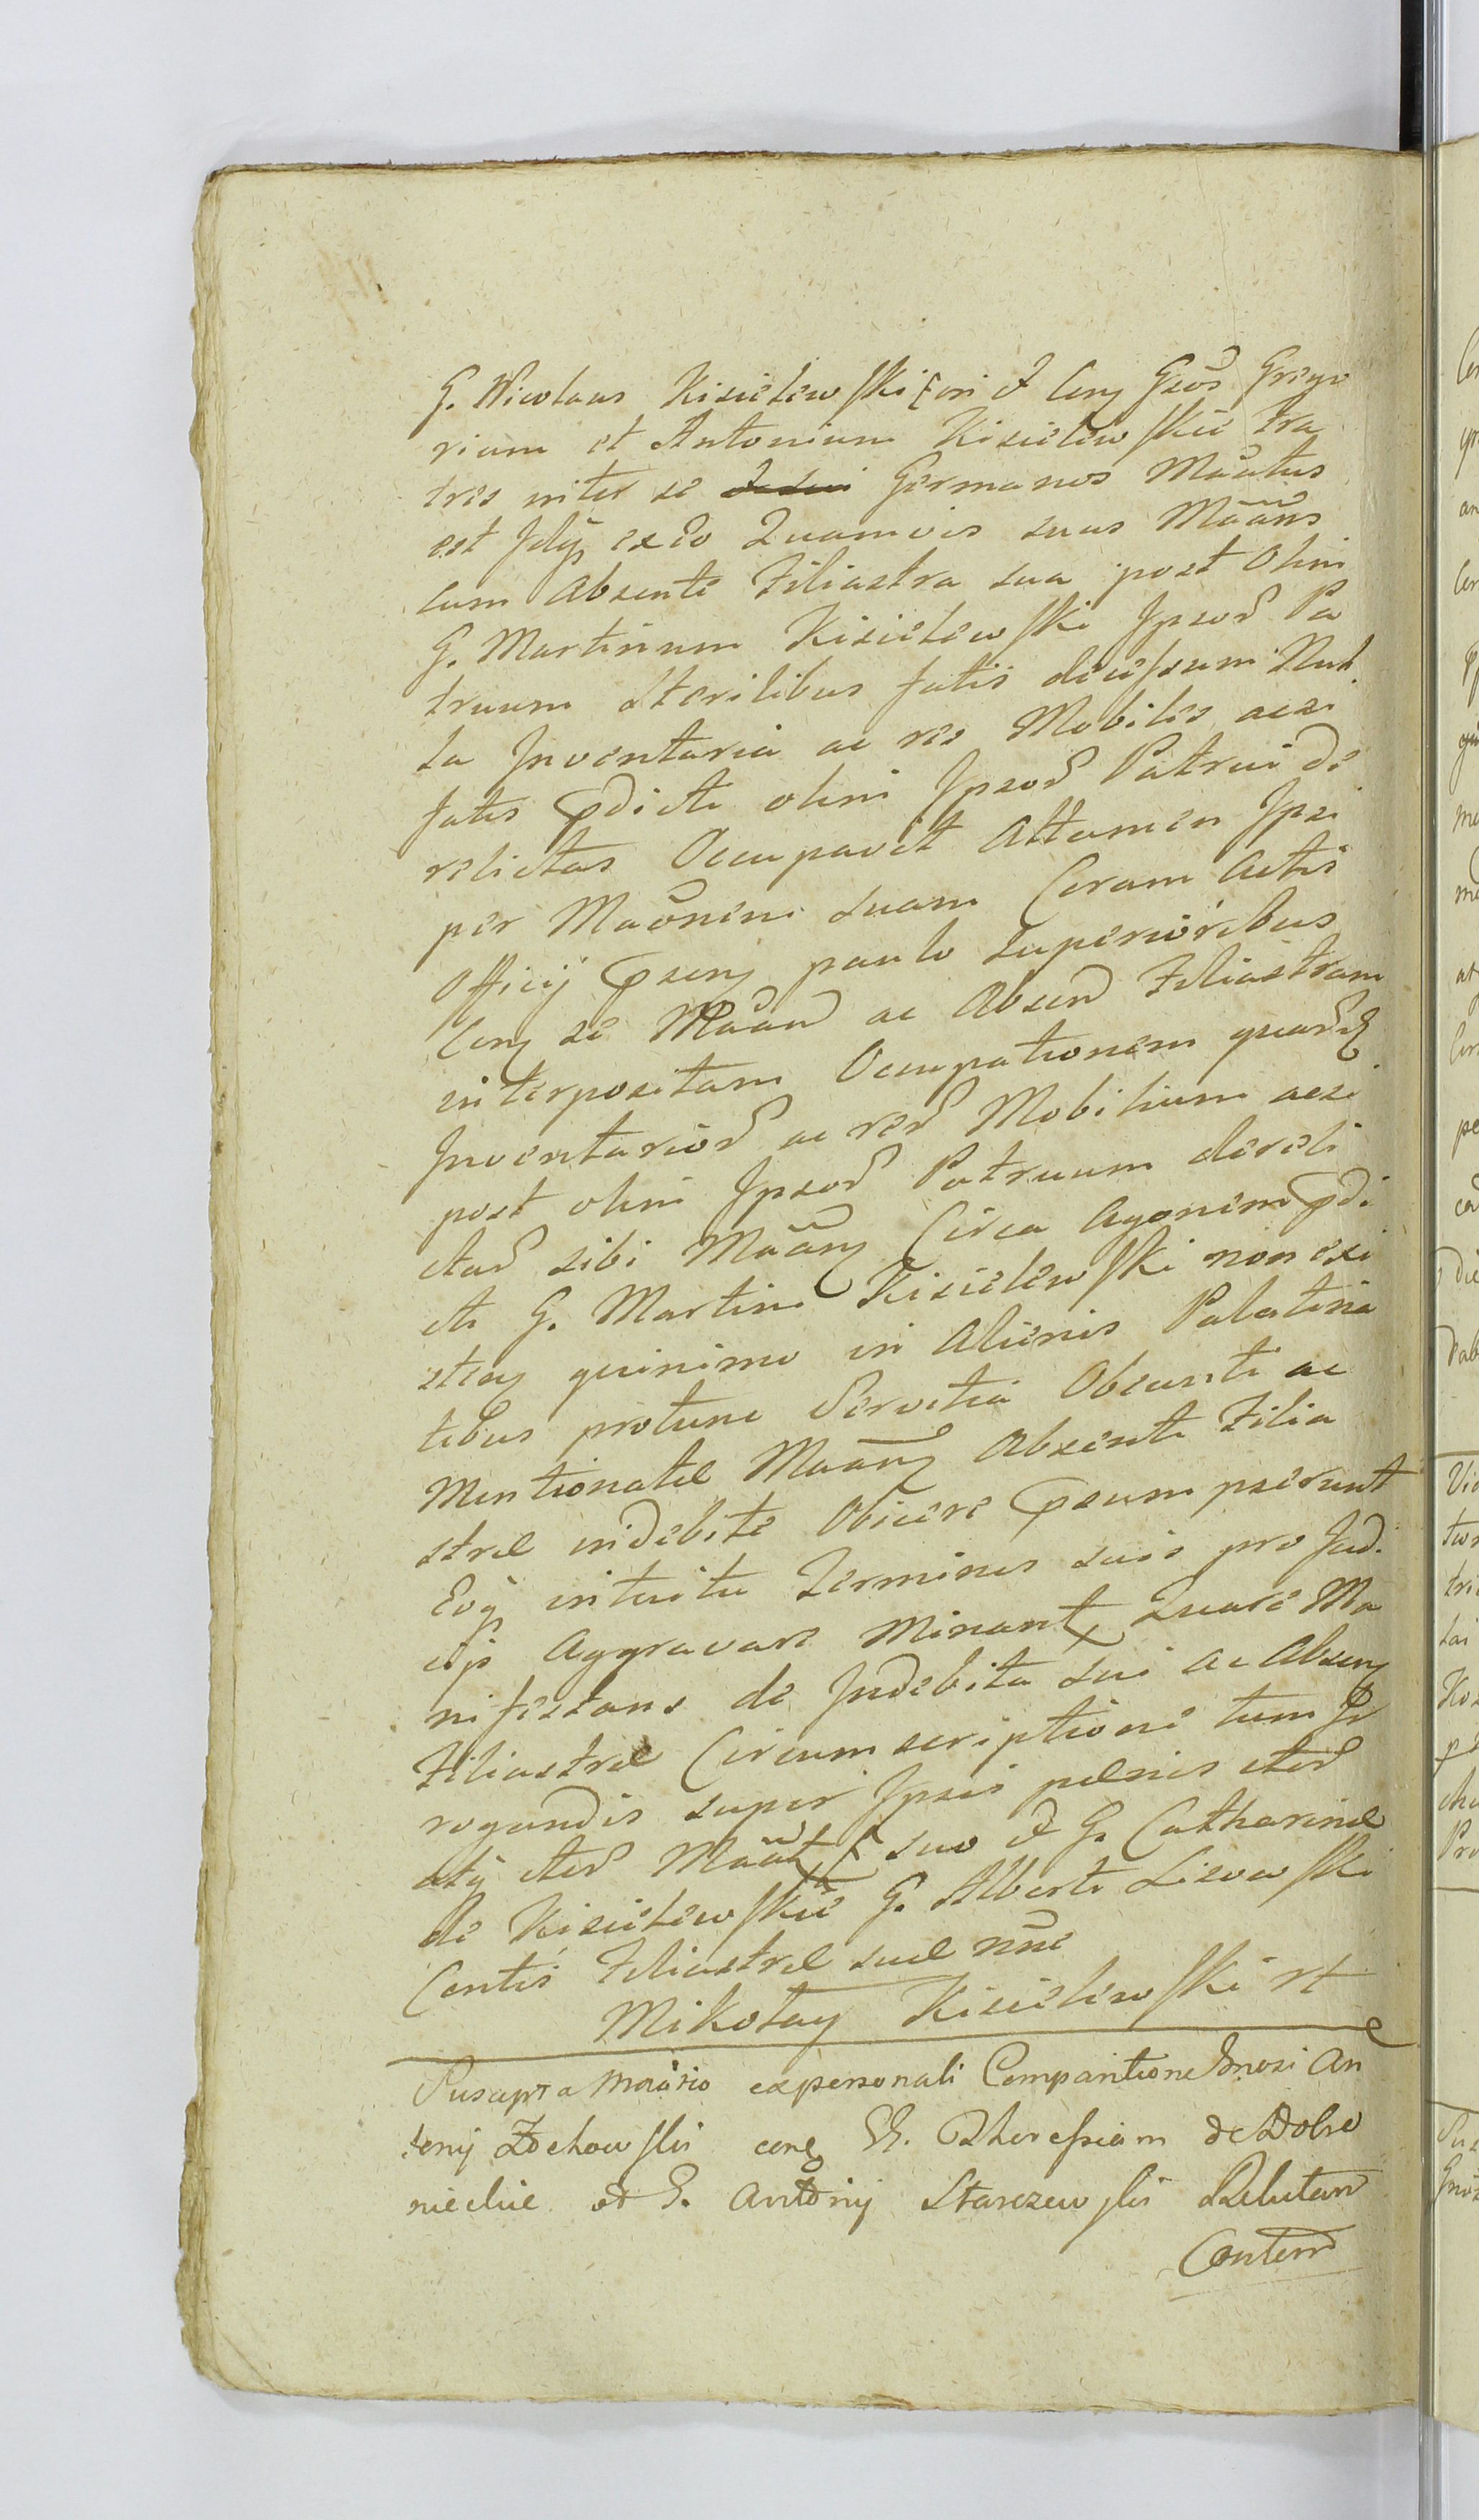 G. Nicolaus Kisielewski Eoři et Conꝫ Gños Grego
rium et Antonium Kisielewskie Fra
tres inter se Germanos Mãatus
est Idꝙ ex Eo Quamvis suus Mããns
cum Absente Filiastra sua post Olim
G. Martinum Kisielewski Ipsoꝝ Pa
truum Sterilibus fatis decessum Nul
la Inventaria ac res Mobiles aesi
fatis pdicti olim Ipsoꝝ Patrui de
relictas Occupavit Attamen Ipsi
per Mãõnem suam Coram Actis
Officij psenꝫ paulo superioribus
Conꝫ se Mããn ac Absen Filiastram
interpositam Occupationem quarꝝ
Inventarioꝝ ac reꝝ Mobilium aesi
post olim Ipsoꝝ Patruum dereli
ctaꝝ sibi Mããnꝫ Circa Agonem pdi
cti G. Martini Kisielewski non exi
stenꝫ quinimo in Alienis Palatina
tibus protunc Servitia Obeunti ac
Mentionatæ Mããnꝫ Absenti Filia
stræ indebite Obicere psumpserunt
Eoꝙ intuitu Terminis suis pro Judi
cijs Aggravare Minantꝰ Quare Ma
nifestans de Indebita sui ac Absenꝫ
Filiastræ Circumscriptione tum Ir
rogandis super Ipsis pœnis iteꝝ
atꝙ iteꝝ Mããtꝰ suo et G. Catharinæ
de Kisielewskie G. Alberti Lisowski
Contis Filiastræ suæ nñe
Mikołay Kisielewski rt
Suscepta Mãõio ex personali Comparitione Gnosi An
tonij Zochowski conꝫ G. Theressiam de Dobro
niechie et G. Antonij Starczewski
Conten